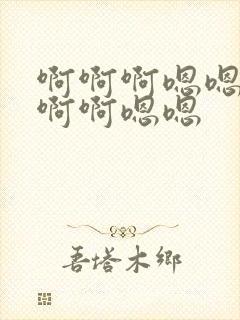 啊啊啊嗯嗯
啊啊嗯嗯
吾塔木乡